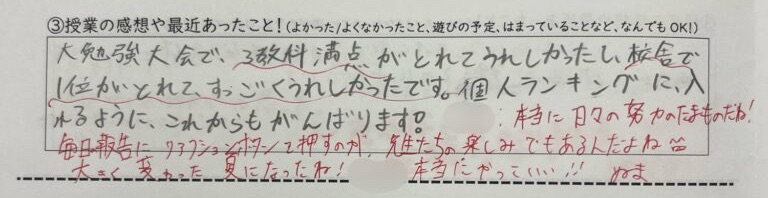 ③授業の感想や最近あったこと！(よかった/よくなかったこと、遊びの予定、はまっていることなど、なんでもOK!)
大勉強大会で、3教科満点がとれてうれしかったし、校舎で
1位がとれて、すっごくうれしかったです。個人ランキングに、入
れるように、これからもがんばります。
：本当に日々の努力のたまものだね!
毎日報告にリアクションボタンを押すのが、先生たちの楽しみでもあるんだよね
大きく変わった夏になったね! 本当にかっこいい!!! ぬま